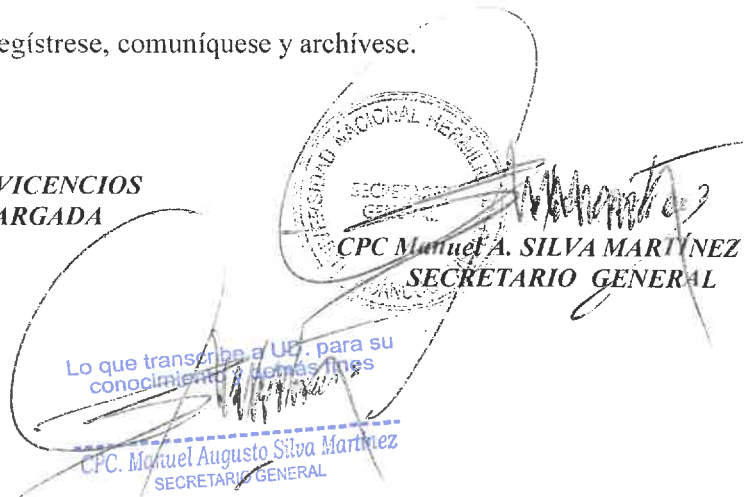 egístrese, comuníquese y archívese.
VICENCIOS
ARGADA
NACIONAL
SECRETARIO
GENERAL
CPC Manuel A. SILVA MARTÍNEZ
SECRETARIO GENERAL
Lo que transcribe a UD. para su
conocimiento y demás fines
CPC. Manuel Augusto Silva Martinez
SECRETARIO GENERAL